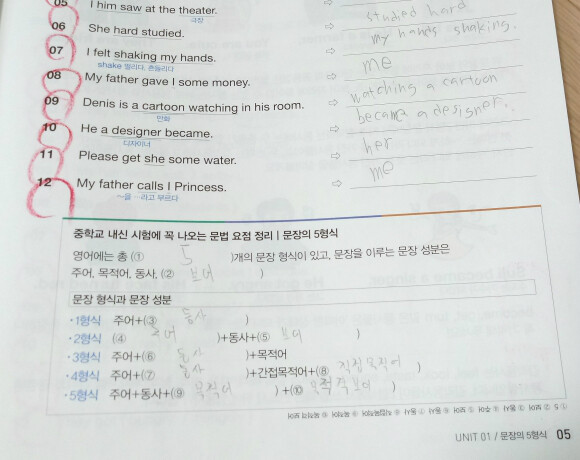 05 I him saw at the theater.
극장
06 She hard studied. ⇨ studied hard
07 I felt shaking my hands. ⇨ my hands shaking.
shake 떨리다, 흔들리다
08 My father gave I some money. ⇨ me
09 Denis is a cartoon watching in his room. ⇨ watching a cartoon
만화
10 He a designer became. ⇨ became a designer.
디자이너
11 Please get she some water. ⇨ her
12 My father calls I Princess. ⇨ me
~을 …라고 부르다
중학교 내신 시험에 꼭 나오는 문법 요점 정리 | 문장의 5형식
영어에는 총 (① 5 )개의 문장 형식이 있고, 문장을 이루는 문장 성분은
주어, 목적어, 동사, (② 보어 )
문장 형식과 문장 성분
·1형식 주어+(③ 동사 )
·2형식 (④ 주어 )+동사+(⑤ 보어 )
·3형식 주어+(⑥ 동사 )+목적어
·4형식 주어+(⑦ 동사 )+간접목적어+(⑧ 직접목적어 )
·5형식 주어+동사+(⑨ 목적어 )+(⑩ 목적격보어 )
① 5 ② 보어 ③ 동사 ④ 주어 ⑤ 보어 ⑥ 동사 ⑦ 동사 ⑧ 직접목적어 ⑨ 목적어 ⑩ 목적격 보어
UNIT 01 / 문장의 5형식 05